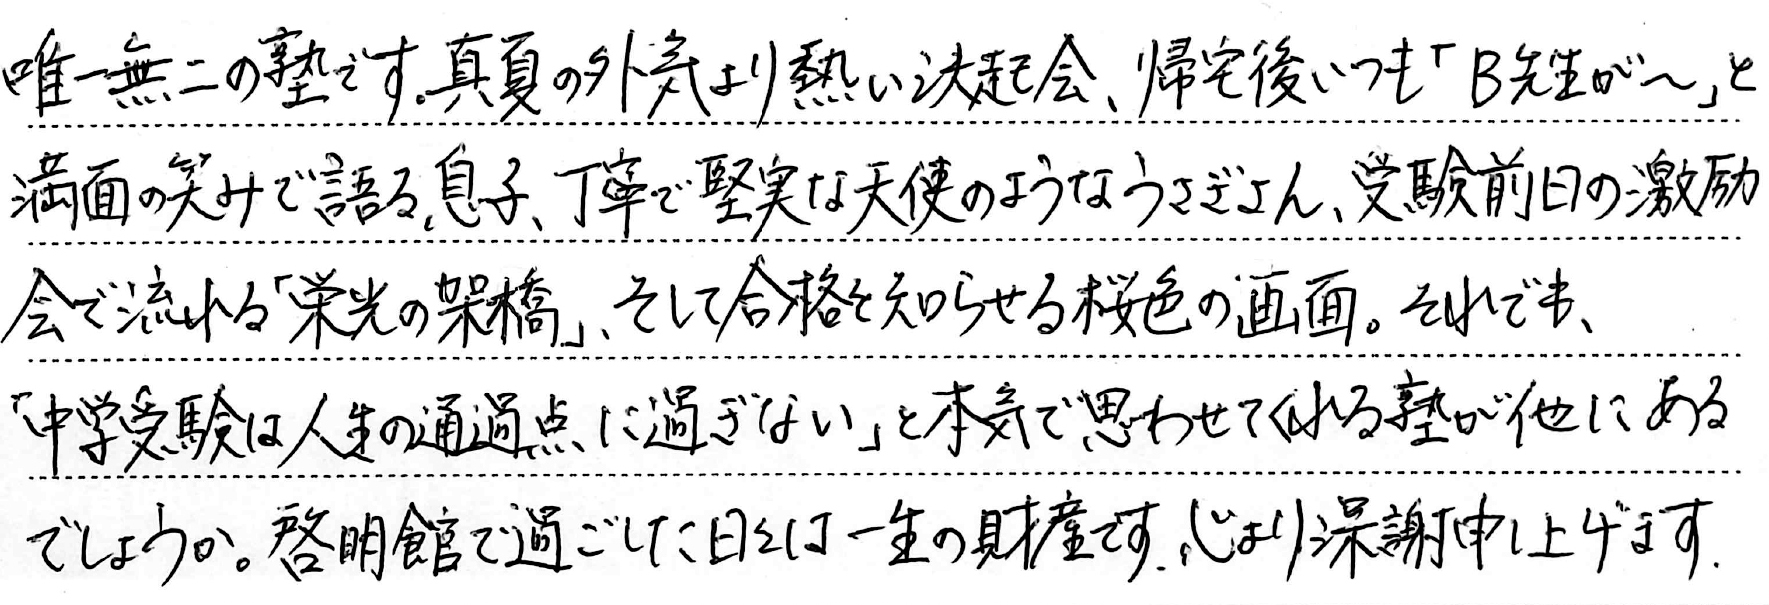 唯一無二の塾です。真夏の外気より熱い決起会、帰宅後いつも「B先生が〜」と
満面の笑みで語る息子、丁寧で堅実な天使のようなうさぎさん、受験前日の激励
会で流れる「栄光の架橋」、そして合格を知らせる桜色の画面。それでも、
「中学受験は人生の通過点に過ぎない」と本気で思わせてくれる塾が他にある
でしょうか。啓明館で過ごした日々は一生の財産です。心より深謝申し上げます.